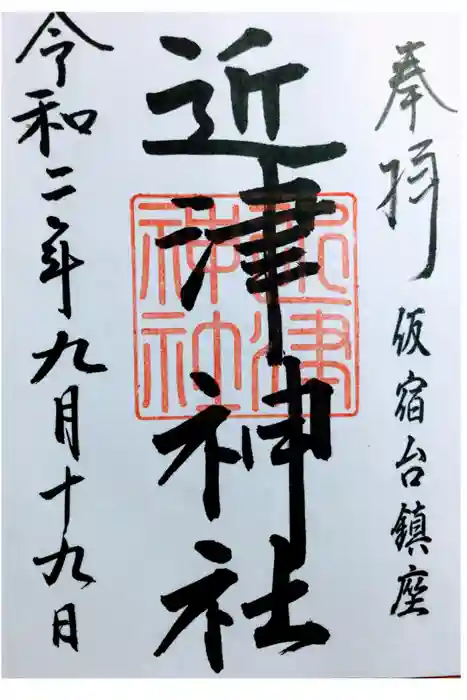 奉拝
仮宿台鎮座
近津神社
近津神社
令和二年九月十九日